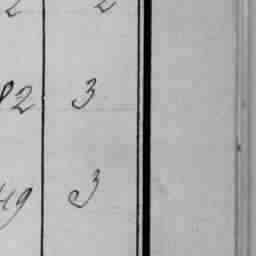 2 2
82 3
49 3